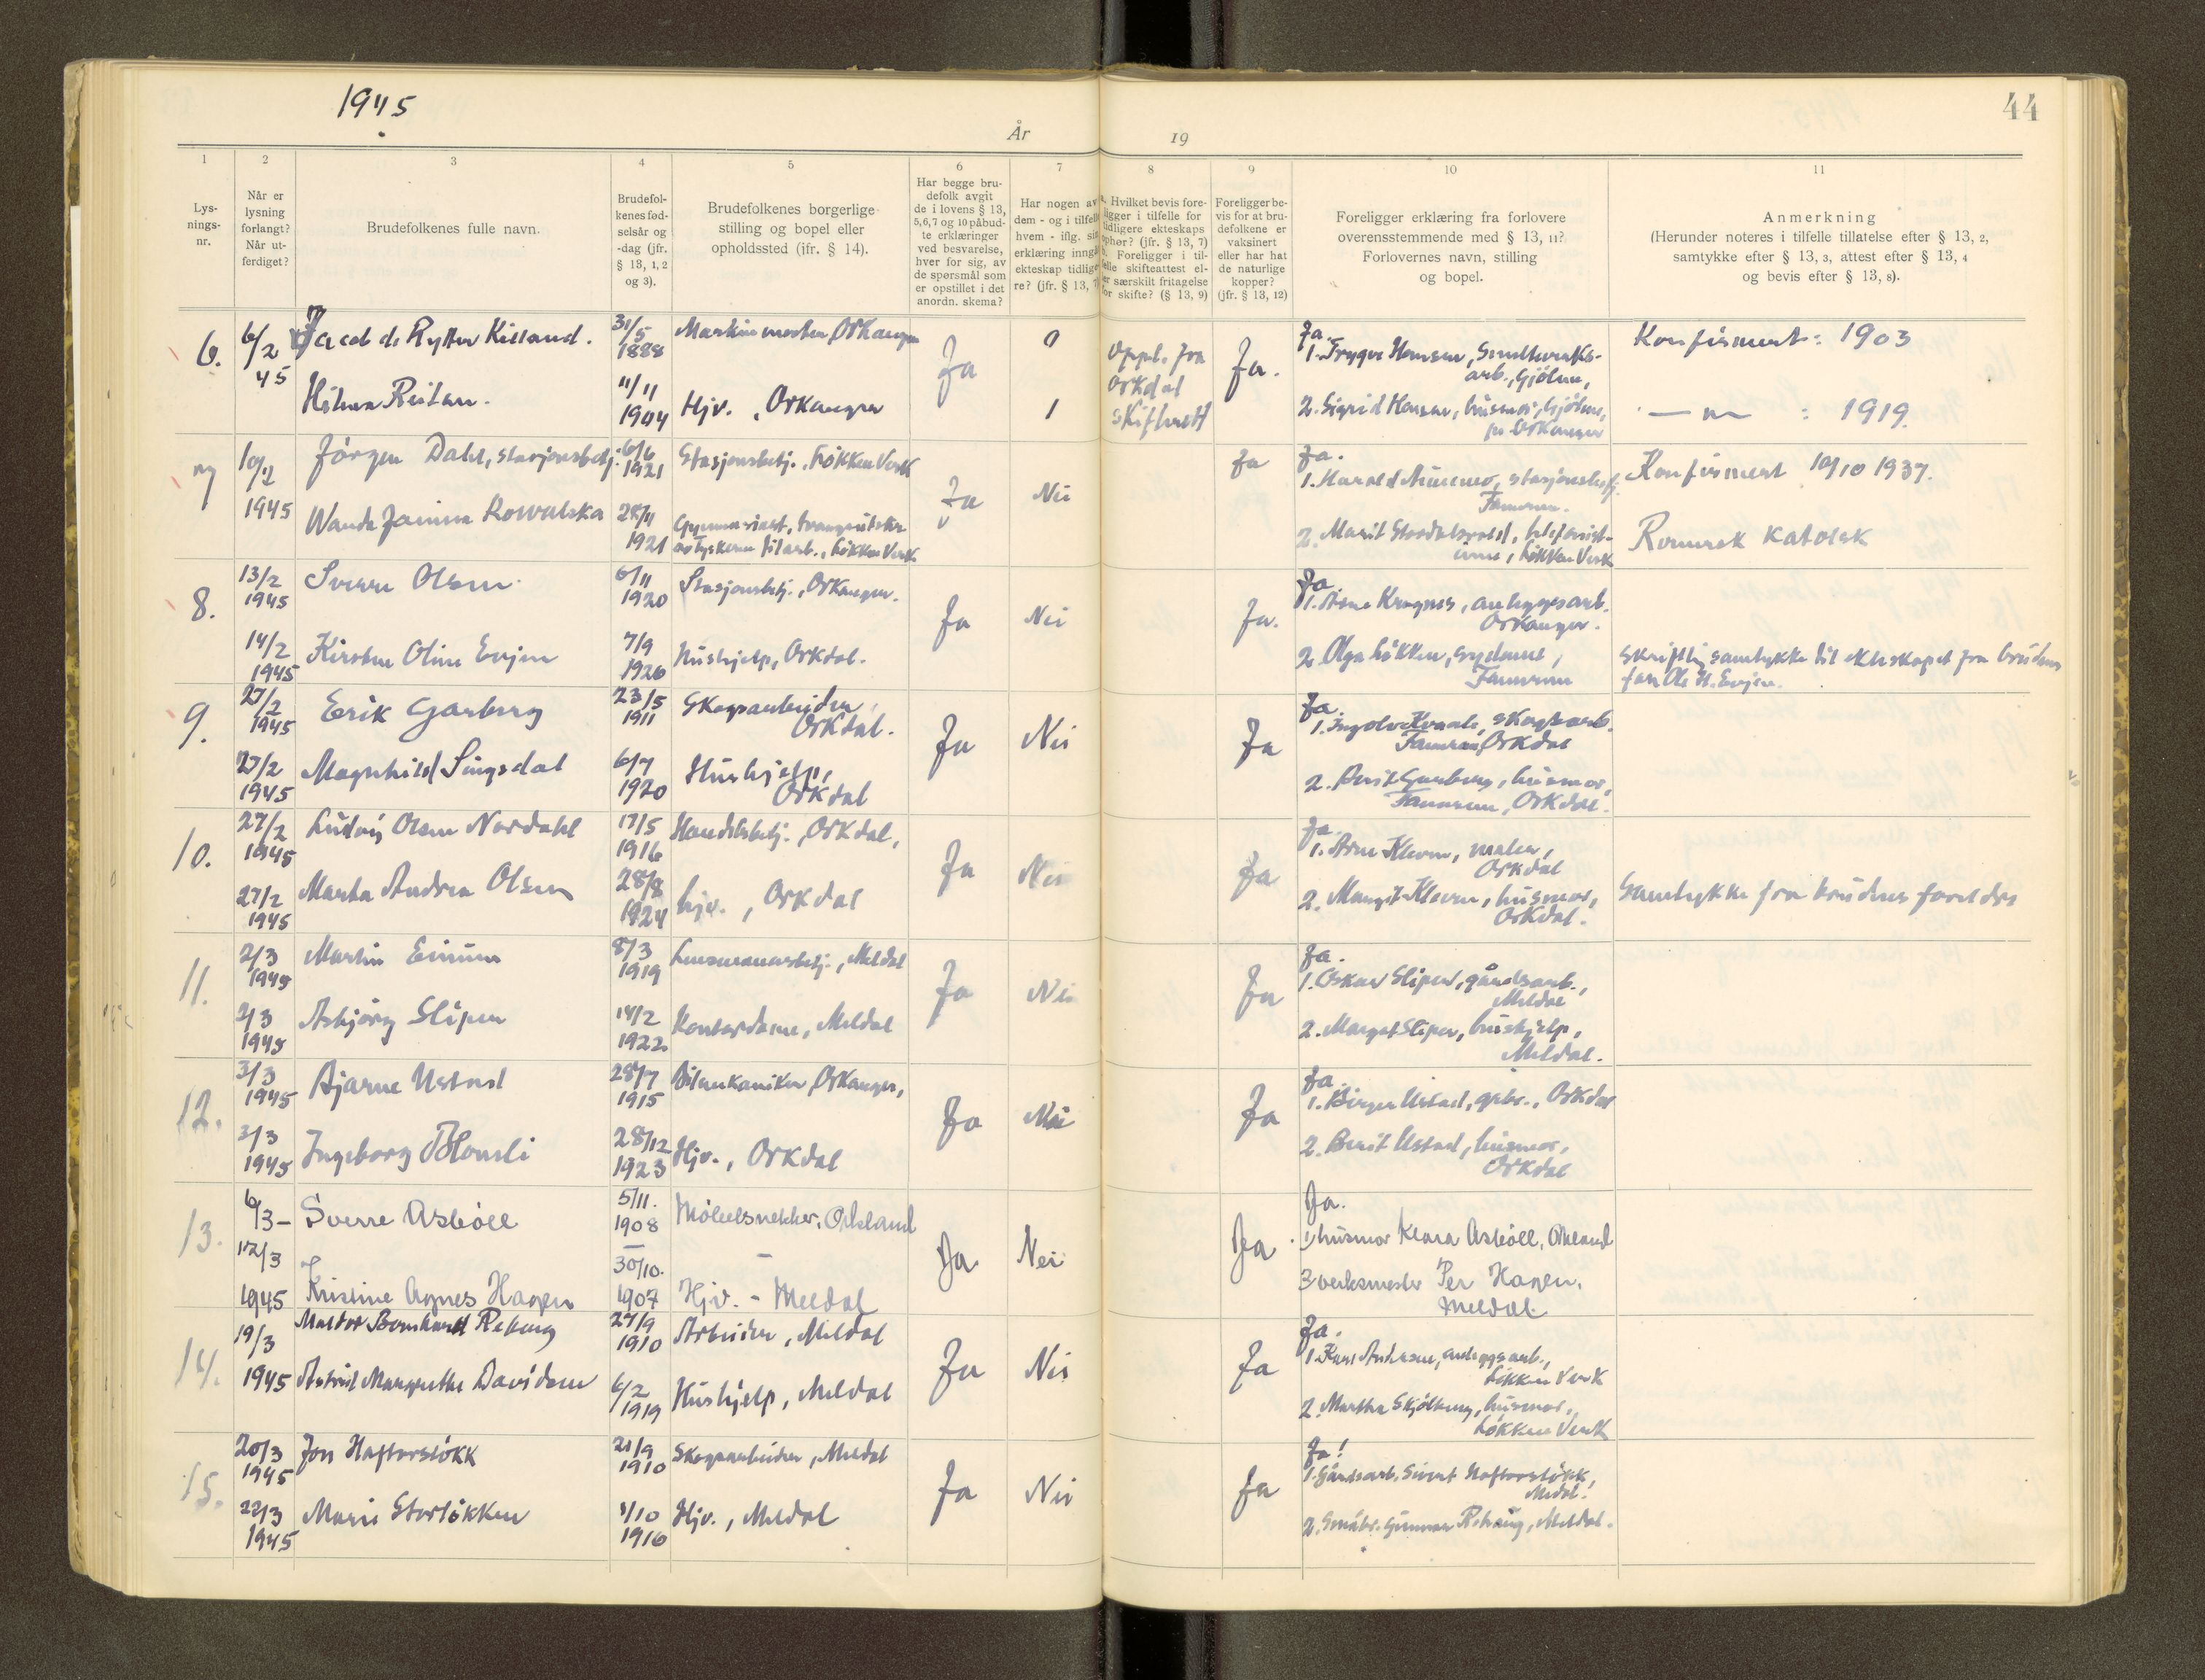 1945
År
19
44
1
2
3
4
5
6
7
8
9
10
11
Lys-
nings-
nr.
Når er
lysning
forlangt?
Når ut-
ferdiget?
Brudefolkenes fulle navn.
Brudefol-
kenes fød-
selsår og
-dag (jfr.
§ 13, 1, 2
og 3).
Brudefolkenes borgerlige
stilling og bopel eller
opholdssted (ifr. § 14).
Har begge bru-
defolk avgit
de i lovens § 13,
5, 6, 7 og 10 påbud-
te erklæringer
ved besvarelse,
hver for sig, av
de spørsmål som
er opstillet i det
anordn. skema?
Har nogen av
dem - og i tilfelle
hvem - iflg. sin
erklæring inngå
ekteskap tidlige
re? (jfr. § 13, 7
a. Hvilket bevis fore-
ligger i tilfelle for
tidligere ekteskaps
ophør? (jfr. § 13, 7)
b. Foreligger i til-
felle skifteattest el-
er særskilt fritagelse
for skifte? (§ 13, 9)
Foreligger be-
vis for at bru-
defolkene er
vaksinert
eller har hat
de naturlige
kopper?
(jfr. § 13, 12)
Foreligger erklæring fra forlovere
overensstemmende med § 13, 11?
Forlovernes navn, stilling
og bopel.
Anmerkning
(Herunder noteres i tilfelle tillatelse efter § 13, 2,
samtykke efter § 13, 3, attest efter § 13, 4
og bevis efter § 13, 8).
6.
6/2
45
Jacob de Rytter Kielland.
31/5
1888
Maskinmester, Orkanger
Ja
0
Oppl. fra
Orkdal
skifterett
Ja.
Ja.
1. Trygve Hansen, Smelteverks-
arb., Gjölme,
Konfirmert: 1903
Hilma Reitan.
11/11
1904
Hjv., Orkanger
1
2. Sigrid Hansen, husmor, Gjölme,
pr Orkanger
— " — : 1919.
7
10/2
1945
Jörgen Dahl, stasjonsbetj.
6/6
1921
Stasjonsbetj., Løkken Verk
Ja
Nei
Ja
Ja.
1. Harald stasjonsbetj.
Fannrem.
Konfirmert 10/10 1937.
Wanda Janina Kowalska
28/11
1921
Gymnasiast, tvangsutskr.
av tyskerne til arb., Løkken Verk
2. Marit telefonist-
inne, Løkken Verk
Romersk katolsk
8.
13/2
1945
Sverre Olsen
6/11
1920
Stasjonsbetj., Orkanger.
Ja
Nei
Ja.
Ja.
1. Arne Kragnes, anleggsarb.
Orkanger.
14/2
1945
Kirsten Oline Evjen
7/9
1926
Hushjelp, Orkdal.
2. Olga Løkken, sydame,
Fannrem
Skriftlig samtykke til ekteskapet fra brudens
far Ole H. Evjen.
9.
27/2
1945
Erik Garberg
23/5
1911
Skogsarbeider,
Orkdal.
Ja
Nei
Ja
Ja.
1. Ingolv Kvaale, skogsarb.
Fannrem, Orkdal
27/2
1945
Magnhild Singsdal
6/7
1920
Hushjelp,
Orkdal
2. Berit Garberg, husmor,
Fannrem, Orkdal.
10.
27/2
1945
Ludvig Olsen Nordahl
17/5
1916
Handelsbetj., Orkdal,
Ja
Nei
Ja
Ja.
1. Arne Kleven, maler,
Orkdal
27/2
1945
Marta Andrea Olsen
28/8
1924
hjv., Orkdal
2. Margit Kleven, husmor,
Orkdal.
Samtykke fra brudens foreldre
11.
2/3
1945
Martin Einum
8/3
1919
Lensmannsbetj., Meldal
Ja
Nei
Ja
Ja.
1. Oskar Slipen, gårdsarb.,
Meldal
2/3
1945
Asbjörg Slipen
14/2
1922
Kontordame, Meldal
2. Margot Slipen, hushjelp,
Meldal.
12.
3/3
1945
Bjarne Ustad
28/7
1915
Bilmekaniker, Orkanger,
Ja
Nei
Ja
Ja.
1. Birger Ustad, gbr., Orkdal
3/3
1945
Ingeborg Blomli
28/12
1923
Hjv., Orkdal
2. Berit Ustad, husmor,
Orkdal
13.
6/3 –
12/3
1945
Sverre Asböll
5/11.
1908
Möbelsnekker, Orkland
Ja
Nei
Ja
Ja.
1) husmor Klara Asböll, Orkland
Kristine Agnes Hagen
30/10.
1907
Hjv. - Meldal
2 verksmester Per Hagen.
Meldal.
14.
19/3
1945
Maldor Bernhard Reberg
27/9
1910
Arbeider, Meldal
Ja
Nei
Ja
Ja.
1. Karl Andersen, anleggsarb.,
Løkken Verk
Astrid Margrethe Davidsen
6/2
1919
Hushjelp, Meldal
2. Martha Skjölberg, husmor,
Løkken Verk
15.
20/3
1945
Jon Haftorslökk
21/9
1910
Skogsarbeider, Meldal
Ja
Nei
Ja
Ja!
1. Gårdsarb. Sivert Haftorslökk,
Meldal.
22/3
1945
Marie Storlökken
1/10
1916
Hjv., Meldal
2. Småbr. Gunnar Rehaug, Meldal.